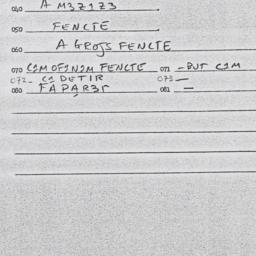 040 A M3Z1Z3
050 FENCTE
060 A GROJS FENCTE
070 C1M OF1N1M FENCTE 071 - BUT C1M
072 - C1 DETIR 073 -
080 FAPAR3T 081 -